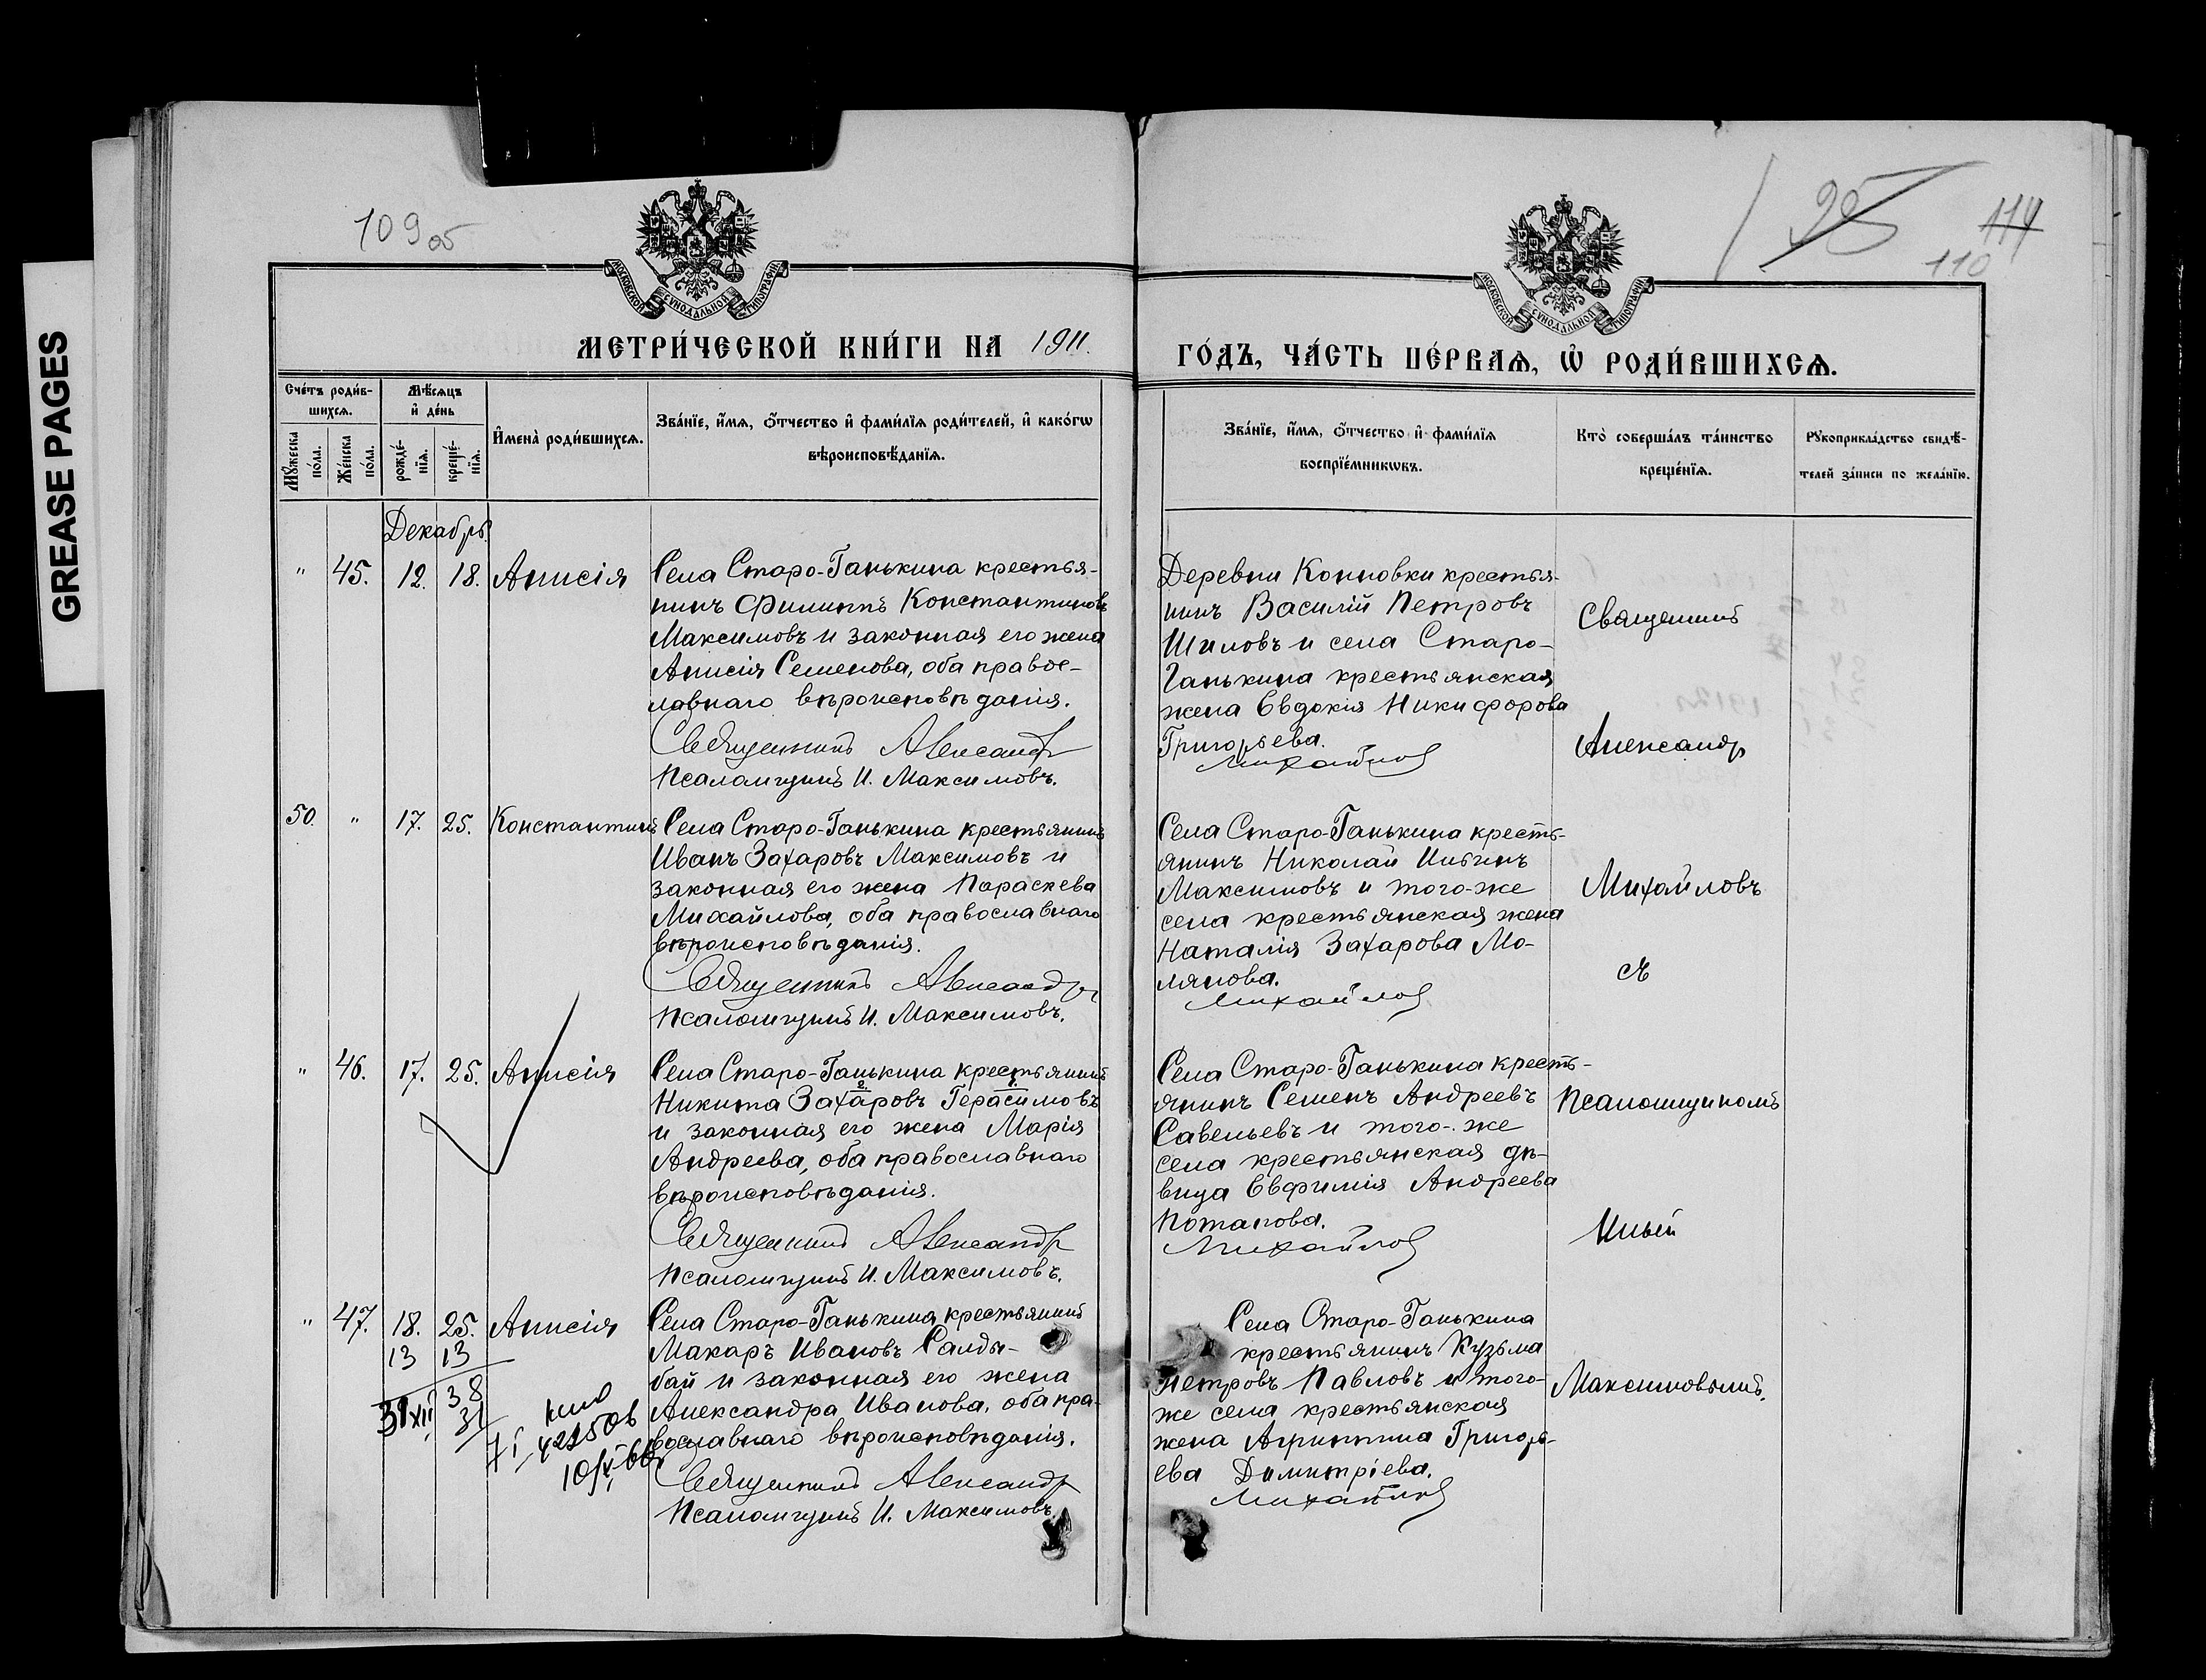 GREASE PAGES
109 об
95
114
110
МОСКОВСКОЙ СѴНОДАЛЬНОЙ ТИПОГРАФІИ
МОСКОВСКОЙ СѴНОДАЛЬНОЙ ТИПОГРАФІИ
МЕТРИ́ЧЕСКОЙ КНИ́ГИ НА 1911.
ГО́ДЪ, ЧА́СТЬ ПЕ́РВАѦ, Ѡ҆ РОДИ́ВШИХСѦ.
Сче́тъ роди́в-
шихсѧ.
Мꙋ́жеска
по́ла.
Же́нска
по́ла.
Мѣ́сѧцъ
и҆ де́нь
рожде́-
нїѧ.
креще́-
нїѧ.
И҆мена̀ роди́вшихсѧ.
Зва́нїе, и҆́мѧ, ѻ҆́тчество и҆ фами́лїѧ роди́телей, и҆ како́гѡ
вѣроисповѣ́данїѧ.
Зва́нїе, и҆́мѧ, ѻ҆́тчество и҆ фами́лїѧ
воспрїе́мникѡвъ.
Кто̀ соверша́лъ та́инство
креще́нїѧ.
Рꙋкоприкла́дство свидѣ́-
телей за́писи по жела́нїю.
Декабрь.
" 45. 12. 18. Анисія
Села Старо-Ганькина крестья-
нинъ Филиппъ Константиновъ
Максимовъ и законная его жена
Анисія Семенова, оба правос-
лавнаго вѣроисповѣданія.
Священникъ Александр
Псаломщикъ И. Максимовъ.
Деревни Конновки крестья-
нинъ Василій Петровъ
Шиловъ и села Старо-
Ганькина крестьянская
жена Евдокія Никифорова
Григорьева.
Михайлов
Священникъ
Александр
50. " 17. 25. Константинъ
Села Старо-Ганькина крестьянинъ
Иванъ Захаровъ Максимовъ и
законная его жена Параскева
Михайлова, оба православнаго
вѣроисповѣданія.
Священникъ Александр
Псаломщикъ И. Максимовъ.
Села Старо-Ганькина кресть-
янинъ Николай Ильинъ
Максимовъ и того-же
села крестьянская жена
Наталія Захарова Мо-
лянова.
Михайлов
Михайловъ
съ
" 46. 17. 25. Анисія
Села Старо-Ганькина крестьянинъ
Никита Захаровъ Герасимовъ
и законная его жена Марія
Андреева, оба православнаго
вѣроисповѣданія.
Священникъ Александр
Псаломщикъ И. Максимовъ.
Села Старо-Ганькина кресть-
янинъ Семенъ Андреевъ
Савельевъ и того-же
села крестьянская дѣ-
вица Евфимія Андреева
Потапова.
Михайлов
Псаломщикомъ
Ильей
" 47. 18. 25. Анисія
13 13
31 XII 38
31
7 I
422506
Села Старо-Ганькина крестьянинъ
Макаръ Ивановъ Салды-
бай и законная его жена
Александра Иванова, оба пра-
вославнаго вѣроисповѣданія.
Священникъ Александр
Псаломщикъ И. Максимовъ.
Села Старо-Ганькина
крестьянинъ Кузьма
Петровъ Павловъ и того-
же села крестьянская
жена Агриппина Григорь-
ева Димитріева.
Михайлов
Максимовымъ.